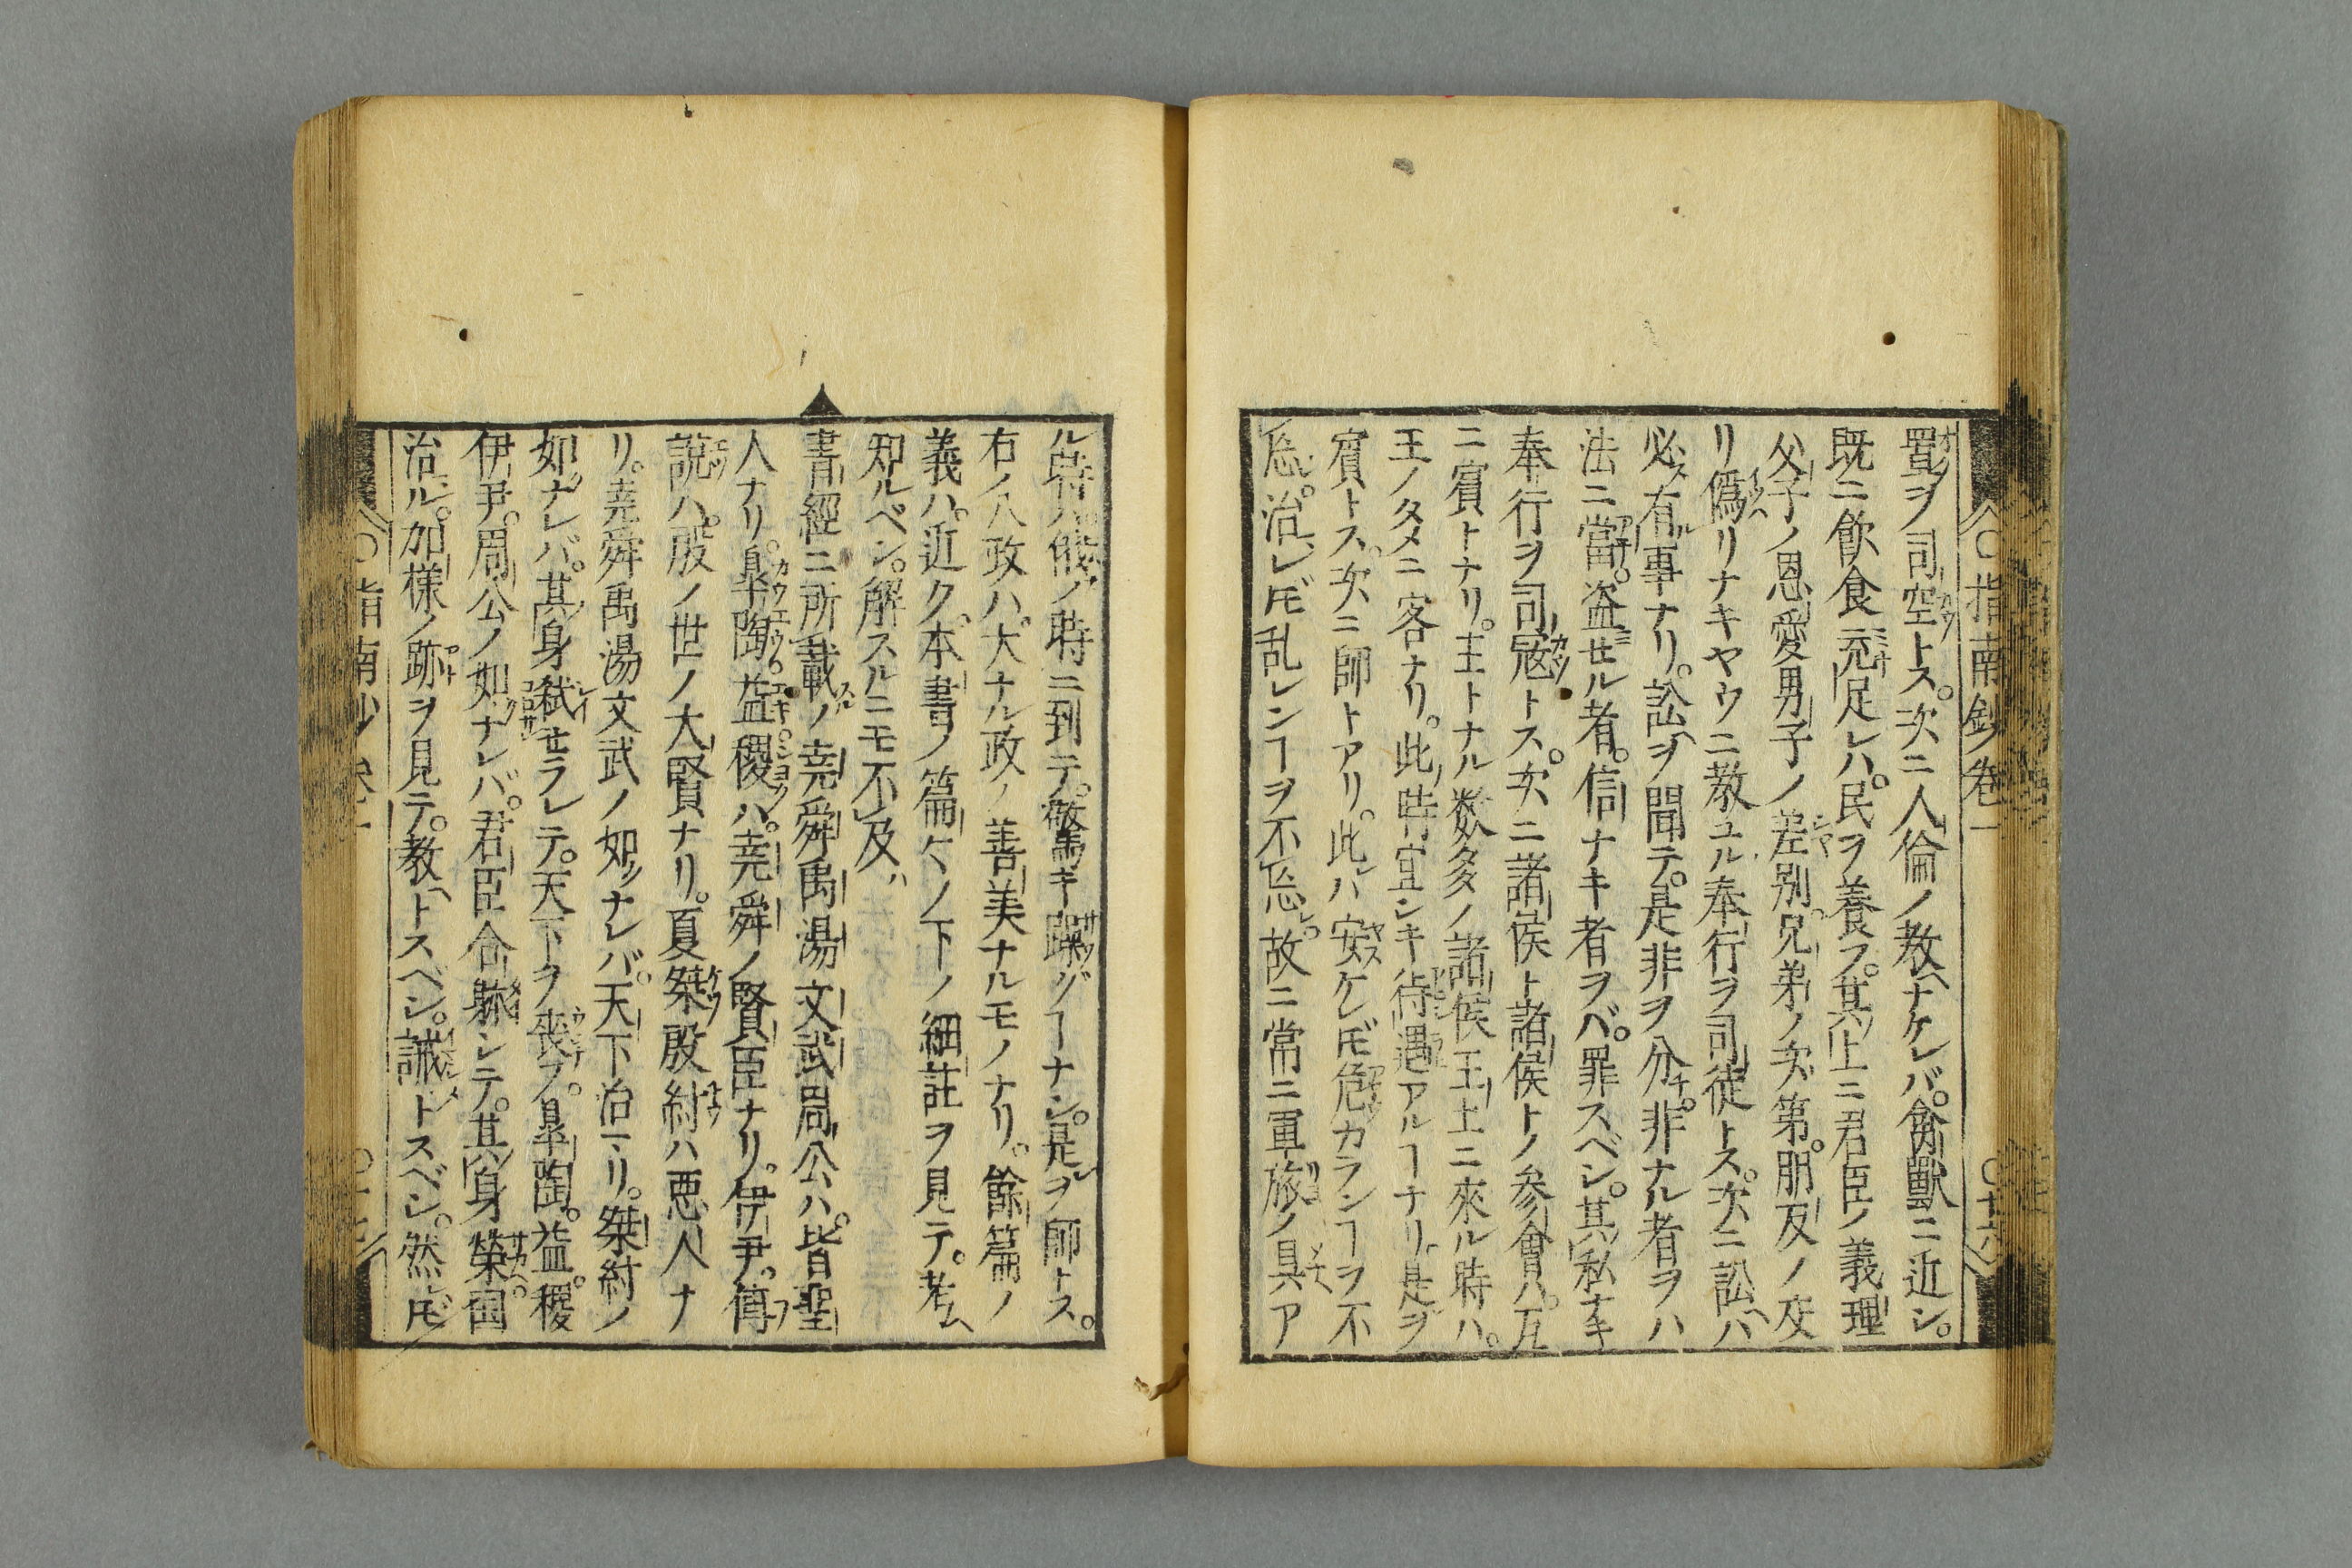 〇指南鈔卷一
〇十六
置ヲ司空トス。次ニ人倫ノ教ヘナケレバ。禽獸ニ近シ。
既ニ飲食充足レハ。民ヲ養フ。其上ニ君臣ノ義理
父子ノ恩愛男子ノ差別兄弟ノ次第。朋友ノ交
リ僞リナキヤウニ教ユル奉行ヲ司徒トス。次ニ訟ハ
必ス有ル事ナリ。訟ヲ聞テ。是非ヲ分チ。非ナル者ヲハ
法ニ當。盗セル者。信ナキ者ヲバ。罪スベシ。其私ナキ
奉行ヲ司寇トス。次ニ諸侯ト諸侯トノ参會ハ。互
ニ賓トナリ。主トナル数多ノ諸侯王上ニ來ル時ハ。
王ノタメニ客ナリ。此ノ時宜シキ待遇アルヿナリ是ヲ
賓トス。次ニ師トアリ。此レハ安ケレ𪜈危カランヿヲ不
忘レ。治レ𪜈乱レンヿヲ不忘レ。故ニ常ニ軍旅ノ具ア
ル時ハ。俄ノ時ニ到テ。驚キ躁グヿナシ。是レヲ師トス。
右ノ八政ハ。大ナル政ノ善美ナルモノナリ。餘篇ノ
義ハ。近ク。本書ノ篇々ノ下ノ細註ヲ見テ。考ヘ
知ルベシ。解スルニモ不及ハ
書經ニ所載ノ尭舜禹湯文武周公ハ。皆聖
人ナリ。皐陶。益。稷ハ。尭舜ノ賢臣ナリ。伊尹。傅
説ハ。殷ノ世ノ大賢ナリ。夏桀殷紂ハ悪人ナ
リ。尭舜禹湯文武ノ如クナレバ。天下治マリ。桀紂ノ
如クナレバ。其ノ身弑セラレテ。天下ヲ喪フ。皐陶。益。稷
伊尹。周公ノ如クナレバ。君臣合躰シテ。其ノ身榮ヘ。国
治ル。加様ノ跡ヲ見テ。教ヘトスベシ。誡トスベシ。然レ𪜈
〇指南鈔卷一